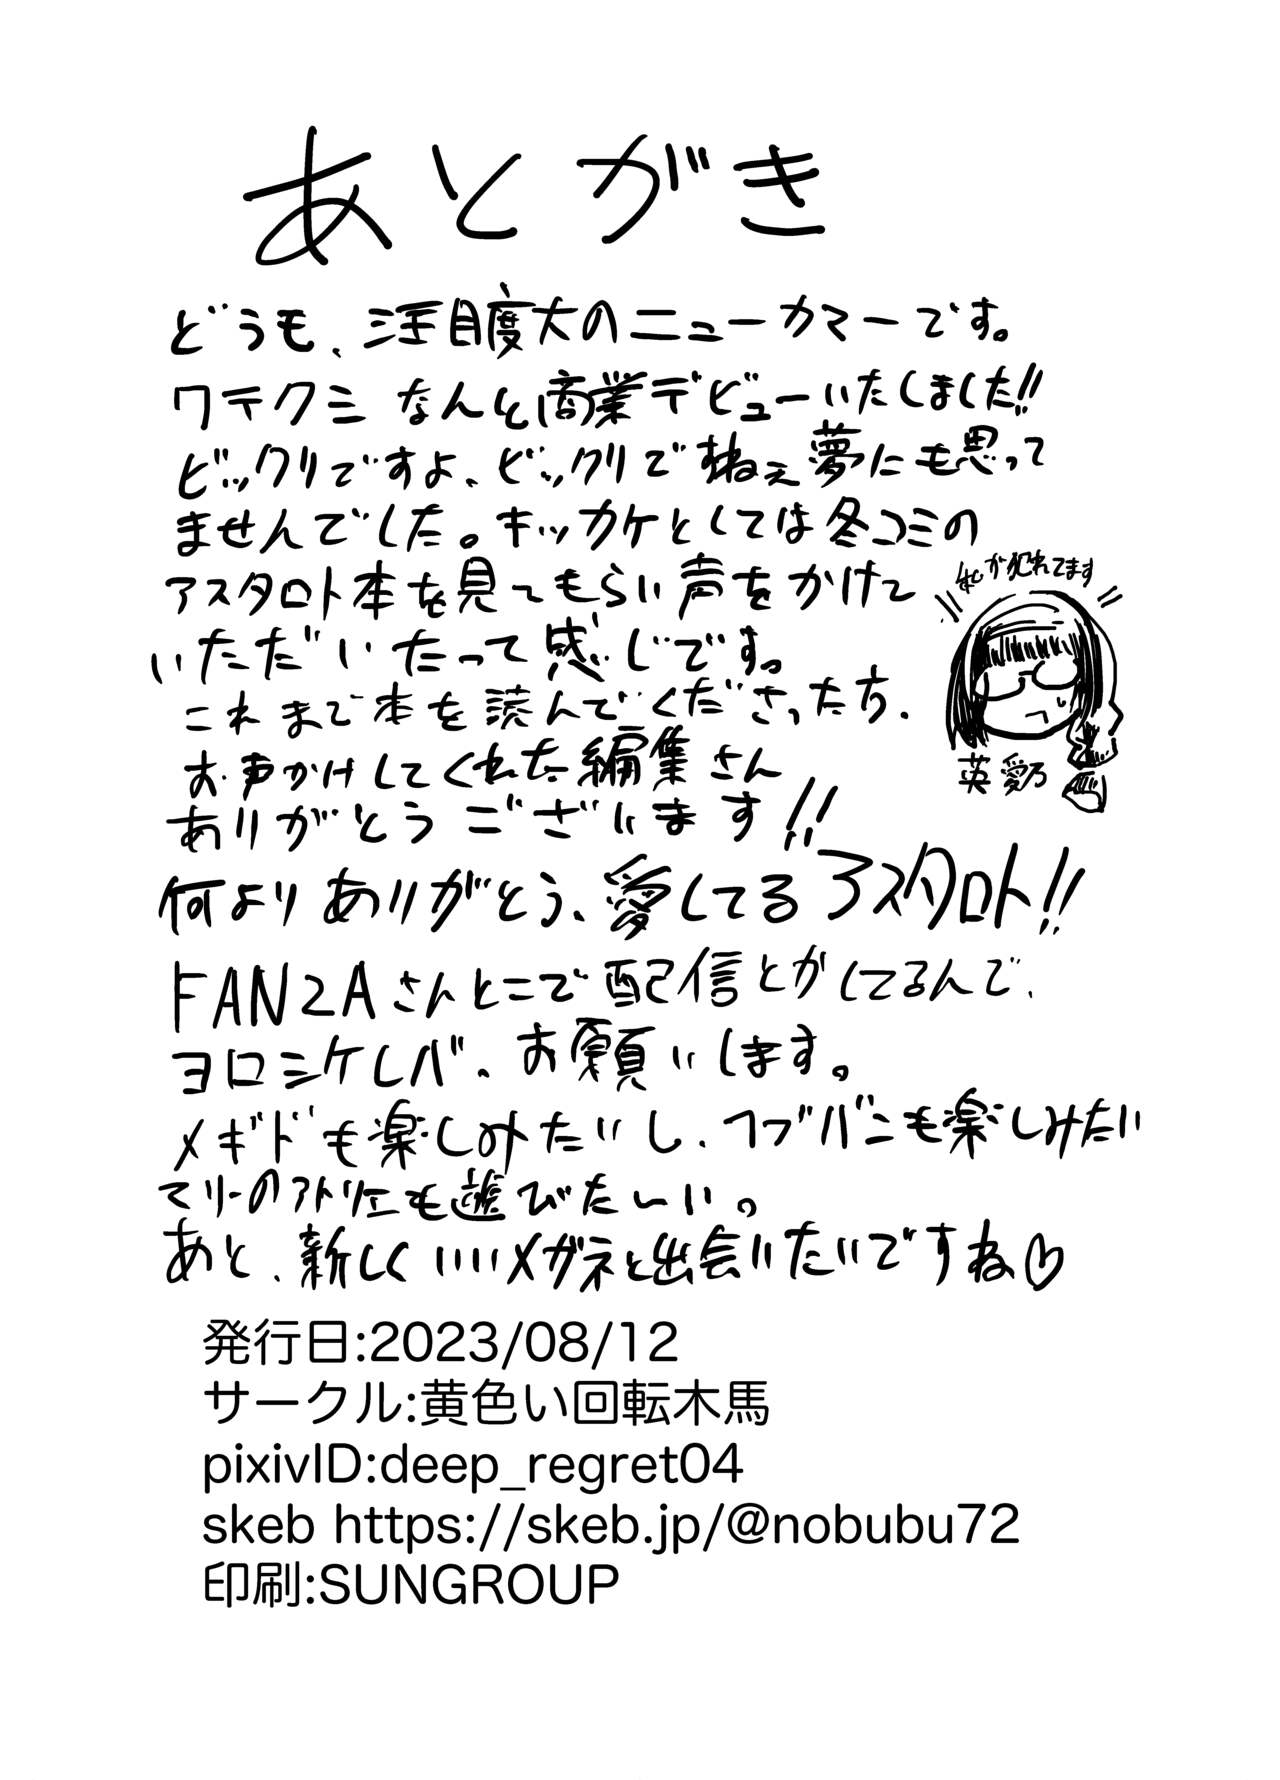 あとがき
どうも、注目度大のニューカマーです。
ワテクシ なんと商業デビューいたしました!!
ビックリですよ、ビックリでねぇ夢にも思って
ませんでした。キッカケとしては冬コミの
アスタロト本を見てもらい声をかけて
いただいたって感じです。
これまで本を読んでくださった方、
お声かけしてくれた編集さん
ありがとうございます!!
私が犯れてます
英 愛乃
何よりありがとう、愛してるアスタロト!!
FANZAさんとこで配信とかしてるんで、
ヨロシケレバ、お願いします。
メギドも楽しみたいし、フブバンも楽しみたい
マリーのアトリエも遊びたーい。
あと、新しくいいメガネと出会いたいですね♡
発行日:2023/08/12
サークル:黄色い回転木馬
pixivID:deep_regret04
skeb https://skeb.jp/@nobubu72
印刷:SUNGROUP